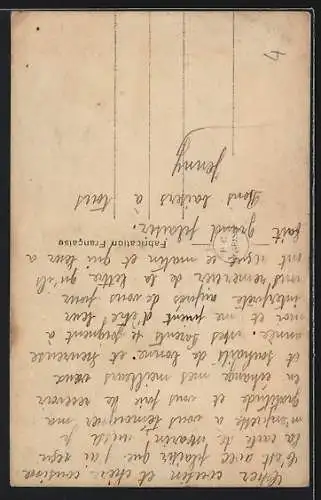 Cher cousin et chère cousine
C'est avec plaisir que j'ai reçu
la carte de Maria
vous témoigner ma
gratitude et vous recevoir
en échange mes meilleurs vœux
et souhaits de bonne et heureuse
année. Mes parents se joignent à
moi et me prient d'être leur
interprète auprès de vous pour
vous remercier de la lettre qu'ils
ont reçut ce matin et qui leur a
fait grand plaisir.
Bons baisers à tous
Jenny
Fabrication Française